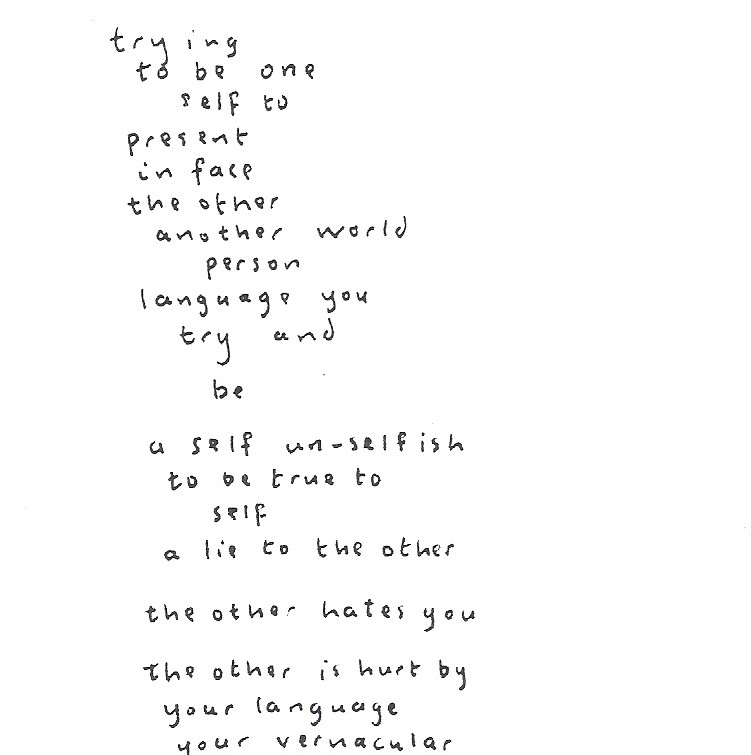 trying
to be one
self to
present
in face
the other
another world
person
language you
try and
be
a self un-selfish
to be true to
self
a lie to the other
the other hates you
the other is hurt by
your language
your vernacular